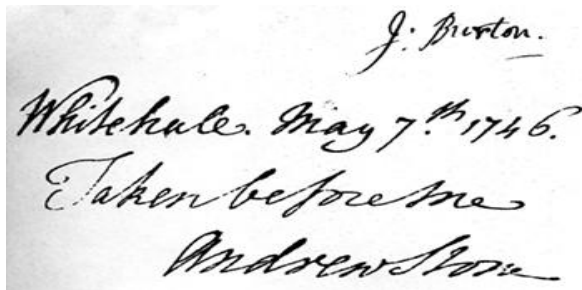 J: Burton.
Whitehall. May 7.th 1746.
Taken before me
Andrew Stone